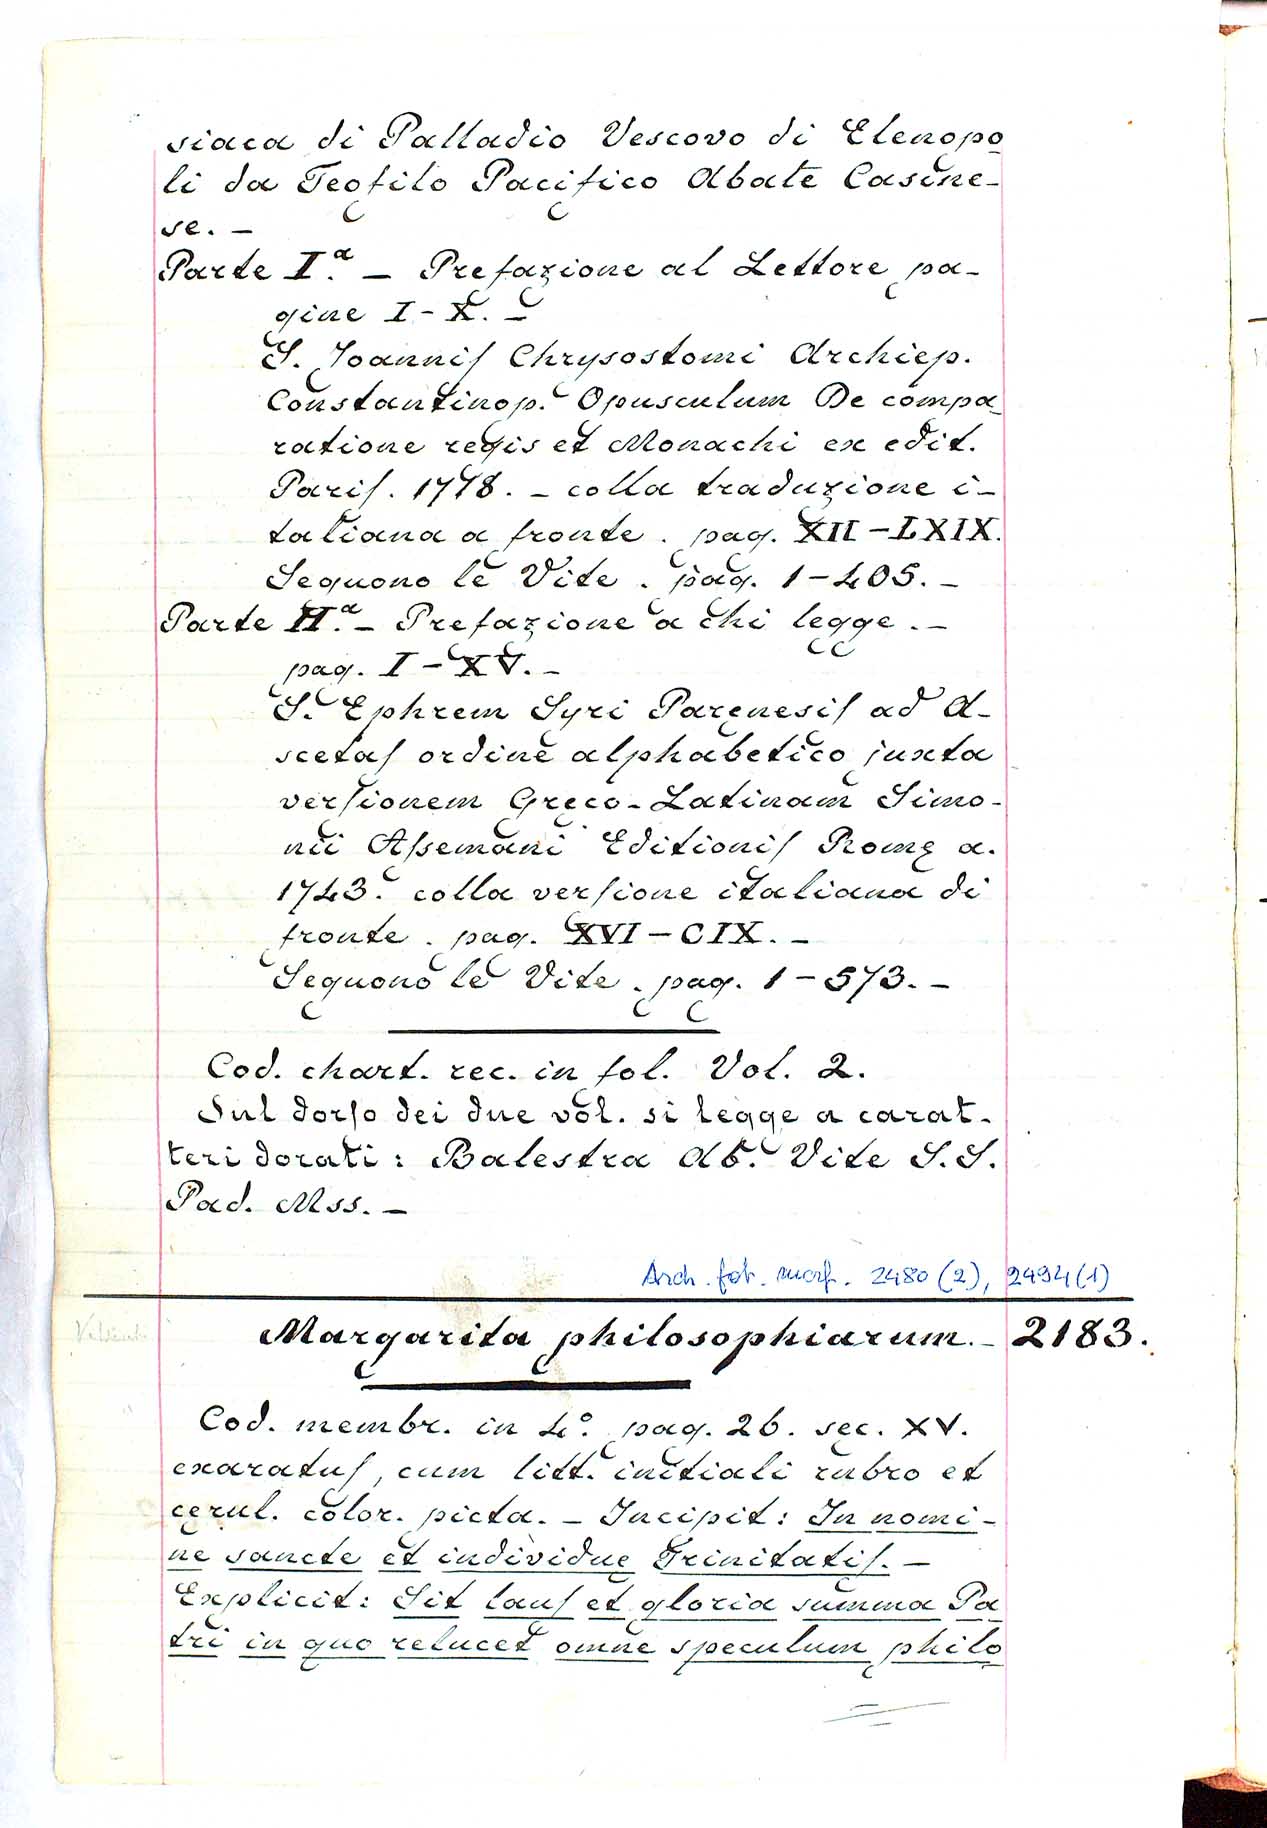 siaca di Palladio Vescovo di Elenopo
li da Teofilo Pacifico Abate Casine-
se. —
Parte I.ª — Prefazione al Lettore pa-
gine I - X. —
S. Joanniſ Chrysostomi Archiep.
Constantinop. Opusculum De compa-
ratione regis et Monachi ex edit.
Pariſ. 1778. — colla traduzione i-
taliana a fronte. pag. XII - LXIX.
Seguono le Vite. pag. 1 - 405. —
Parte II.ª — Prefazione a chi legge. —
pag. I - XV. —
S. Ephrem Syri Paręnesiſ ad A-
scetaſ ordine alphabetico juxta
verſionem Gręco-Latinam Simo-
nii Aſsemani Editioniſ Romę a.
1743. colla verſione italiana di
fronte. pag. XVI - CIX. —
Seguono le Vite. pag. 1 - 573. —
Cod. chart. rec. in fol. Vol. 2.
Sul dorſo dei due vol. si legge a carat-
teri dorati: Balestra Ab. Vite S.S.
Pad. Mss. —
Arch. fot. morf. 2480 (2), 2494 (1)
Margarita philosophiarum. — 2183.
Cod. membr. in 4º pag. 26. sec. XV.
exaratuſ, cum litt. initiali rubro et
cęrul. color. picta. — Incipit: In nomi-
ne sancte et individuę Trinitatiſ. —
Explicit: Sit lauſ et gloria summa Pa
tri in quo relucet omne speculum philo